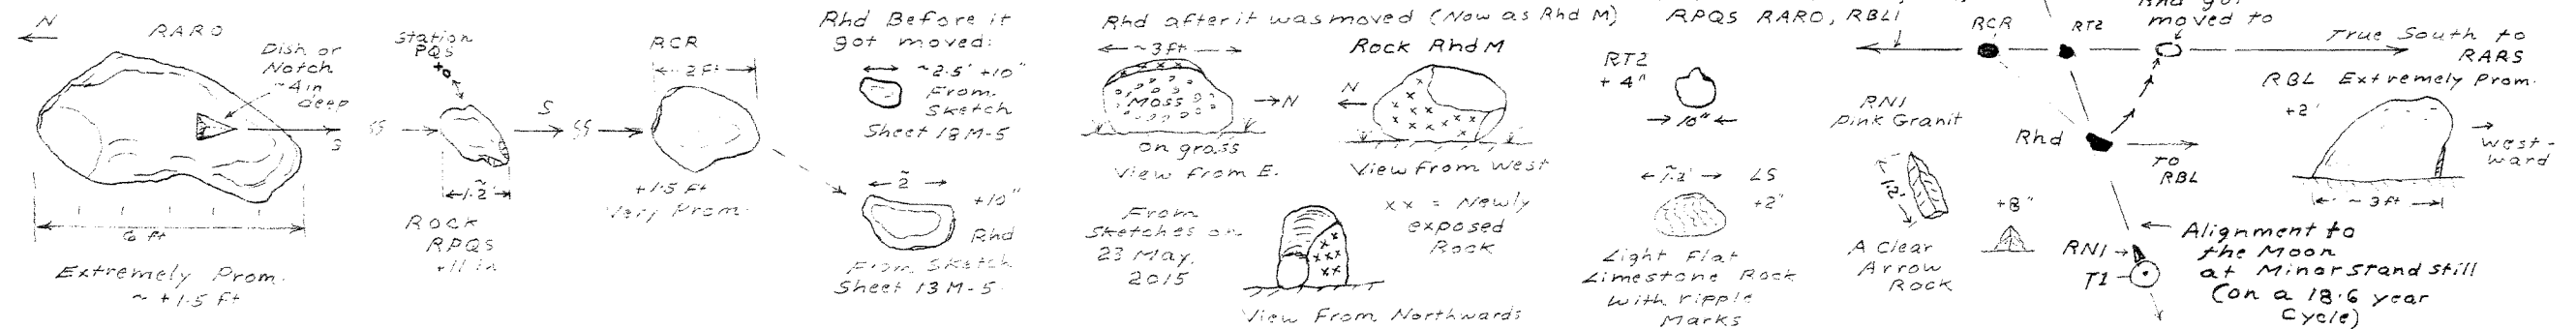 N
RARO
Dish or
Notch
~4in
deep
S
6 ft
Extremely Prom.
~ +1.5 Ft
Station
PQS
~1.2'
ROCK
RPQS
+11 in
S
RCR
2 Ft
+1.5 Ft
Very Prom.
Rhd Before it
got moved:
~2.5' +10"
From
Sketch
Sheet 18M-5
~2
+10"
Rhd
From Sketch
Sheet 13M-5.
Rhd after it was moved (Now as Rhd M)
~3ft
Moss
N
on grass
View From E.
Rock Rhd M
N
View From West
From
Sketches on
23 May,
2015
xx = Newly
exposed
Rock
View From Northwards
RPQS RARO, RBLI
RT2
+ 4"
10"
LS
+2"
Light Flat
Limestone Rock
with ripple
Marks
RNI
Pink Granit
1.2'
+8"
A Clear
Arrow
Rock
RCR
RT2
Rhd got
moved to
True South to
RARS
RBL Extremely Prom.
+2'
west-
ward
~ 3ft
Rhd
TO
RBL
RNI
T1
Alignment to
the Moon
at Minor standstill
(on a 18.6 year
Cycle)